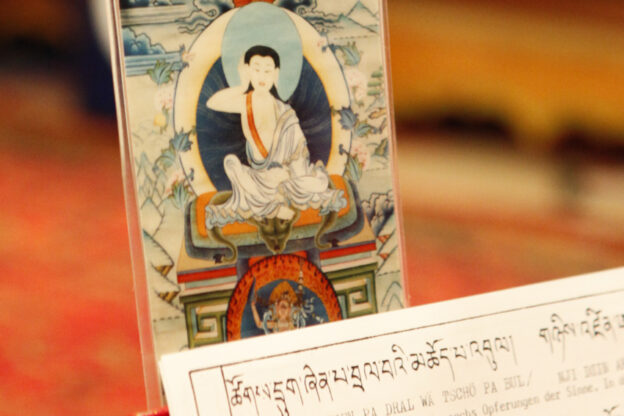 ཚོགས་དྲུག་ཞེན་པ་བྲལ་བའི་མཆོད་པ་འབུལ། གཉིས་འཛིན་
PA DRAL WA TSCHÖ PA BUL/ NJI DSIN
Opferungen der Sinne. In